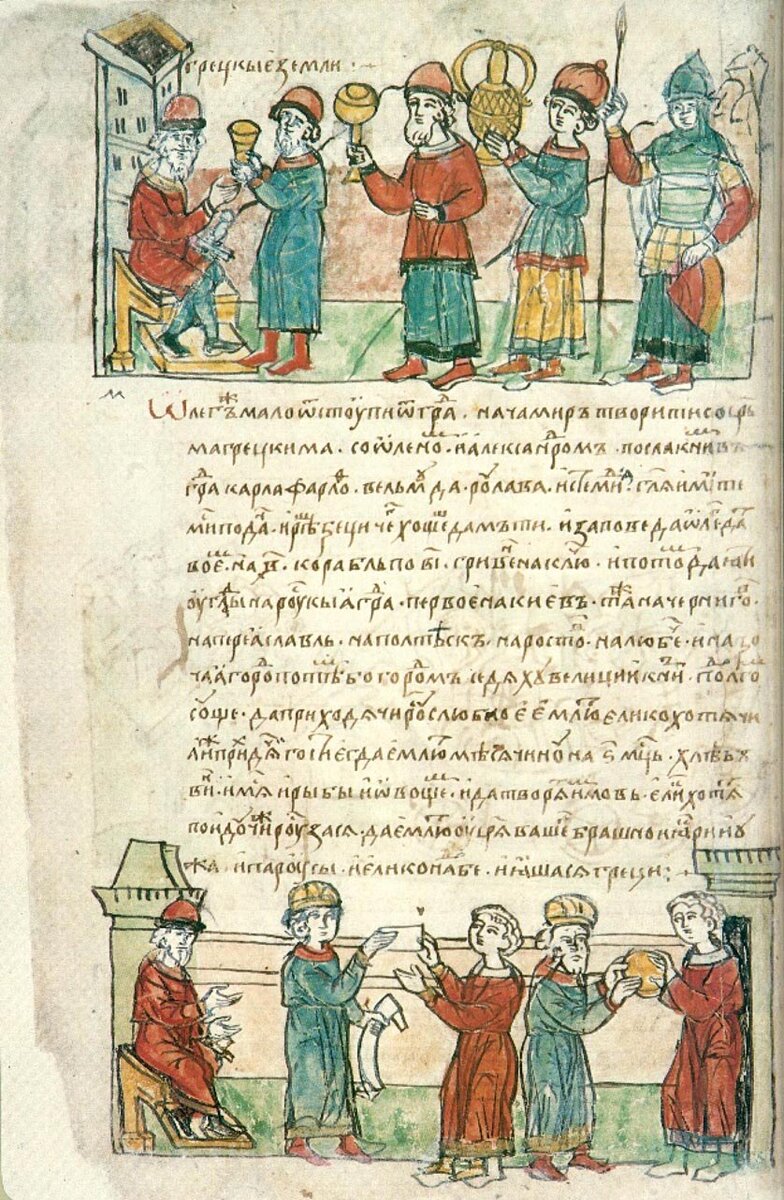 грецкыѣ земли ·
Ѡлегъ ж мало ѿстоупи ѿ град · нача миръ творити со цр҃ь
ма грецкима · со ѡленом и александром · посла к ним въ
град карла фарлоф · вельмуда · рулава · и стемид · гл҃я имите
ми по дан · и рѣша грѣци чего хоще дамъ ти · и заповеда ѡле дат
вое на · в҃ · корабль по в҃і · гривен на клю · и пото даяти
оуглады на роускыа град · первое на киевъ · таж на чернигов ·
на переаславль · на полтѣскъ · на ростов · на любе · и на про
чаа горо по тѣм бо городомъ седяху велиции кн҃зи · под олгом
соуще · да приходячи роус люб ное емлют елико хотячи
аж придут гости егда емлют мѣсячину на ѕ҃ мц҃ь · хлѣбъ
вин · и мяс и рыбы и ѡвоще · и да творят им мовь · елик хотят
поидоуч роу за ся · да емлют оу цр҃я вашег брашно и якори и у
жа · и пароусы · и елико наабе · и яшася греци :·